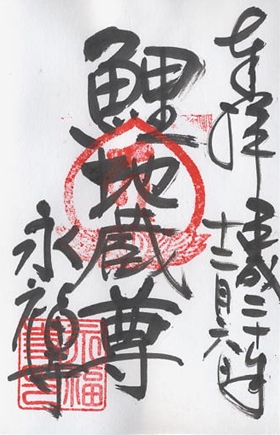 奉拝 平成三十年
十二月六日
鯉地蔵尊
永福寺